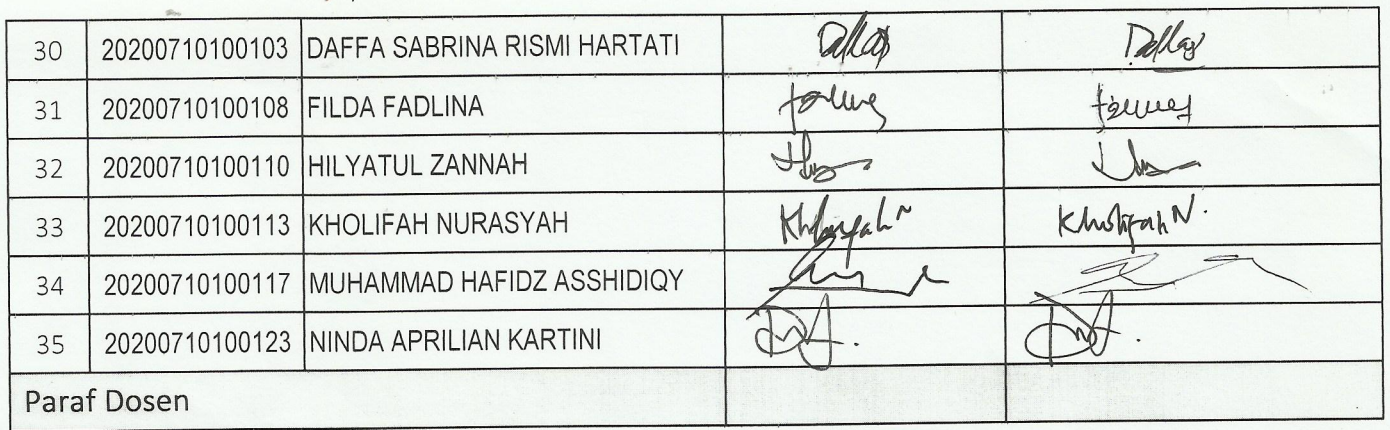 30 20200710100103 DAFFA SABRINA RISMI HARTATI
31 20200710100108 FILDA FADLINA
32 20200710100110 HILYATUL ZANNAH
33 20200710100113 KHOLIFAH NURASYAH Kholifah N.
34 20200710100117 MUHAMMAD HAFIDZ ASSHIDIQY
35 20200710100123 NINDA APRILIAN KARTINI
Paraf Dosen